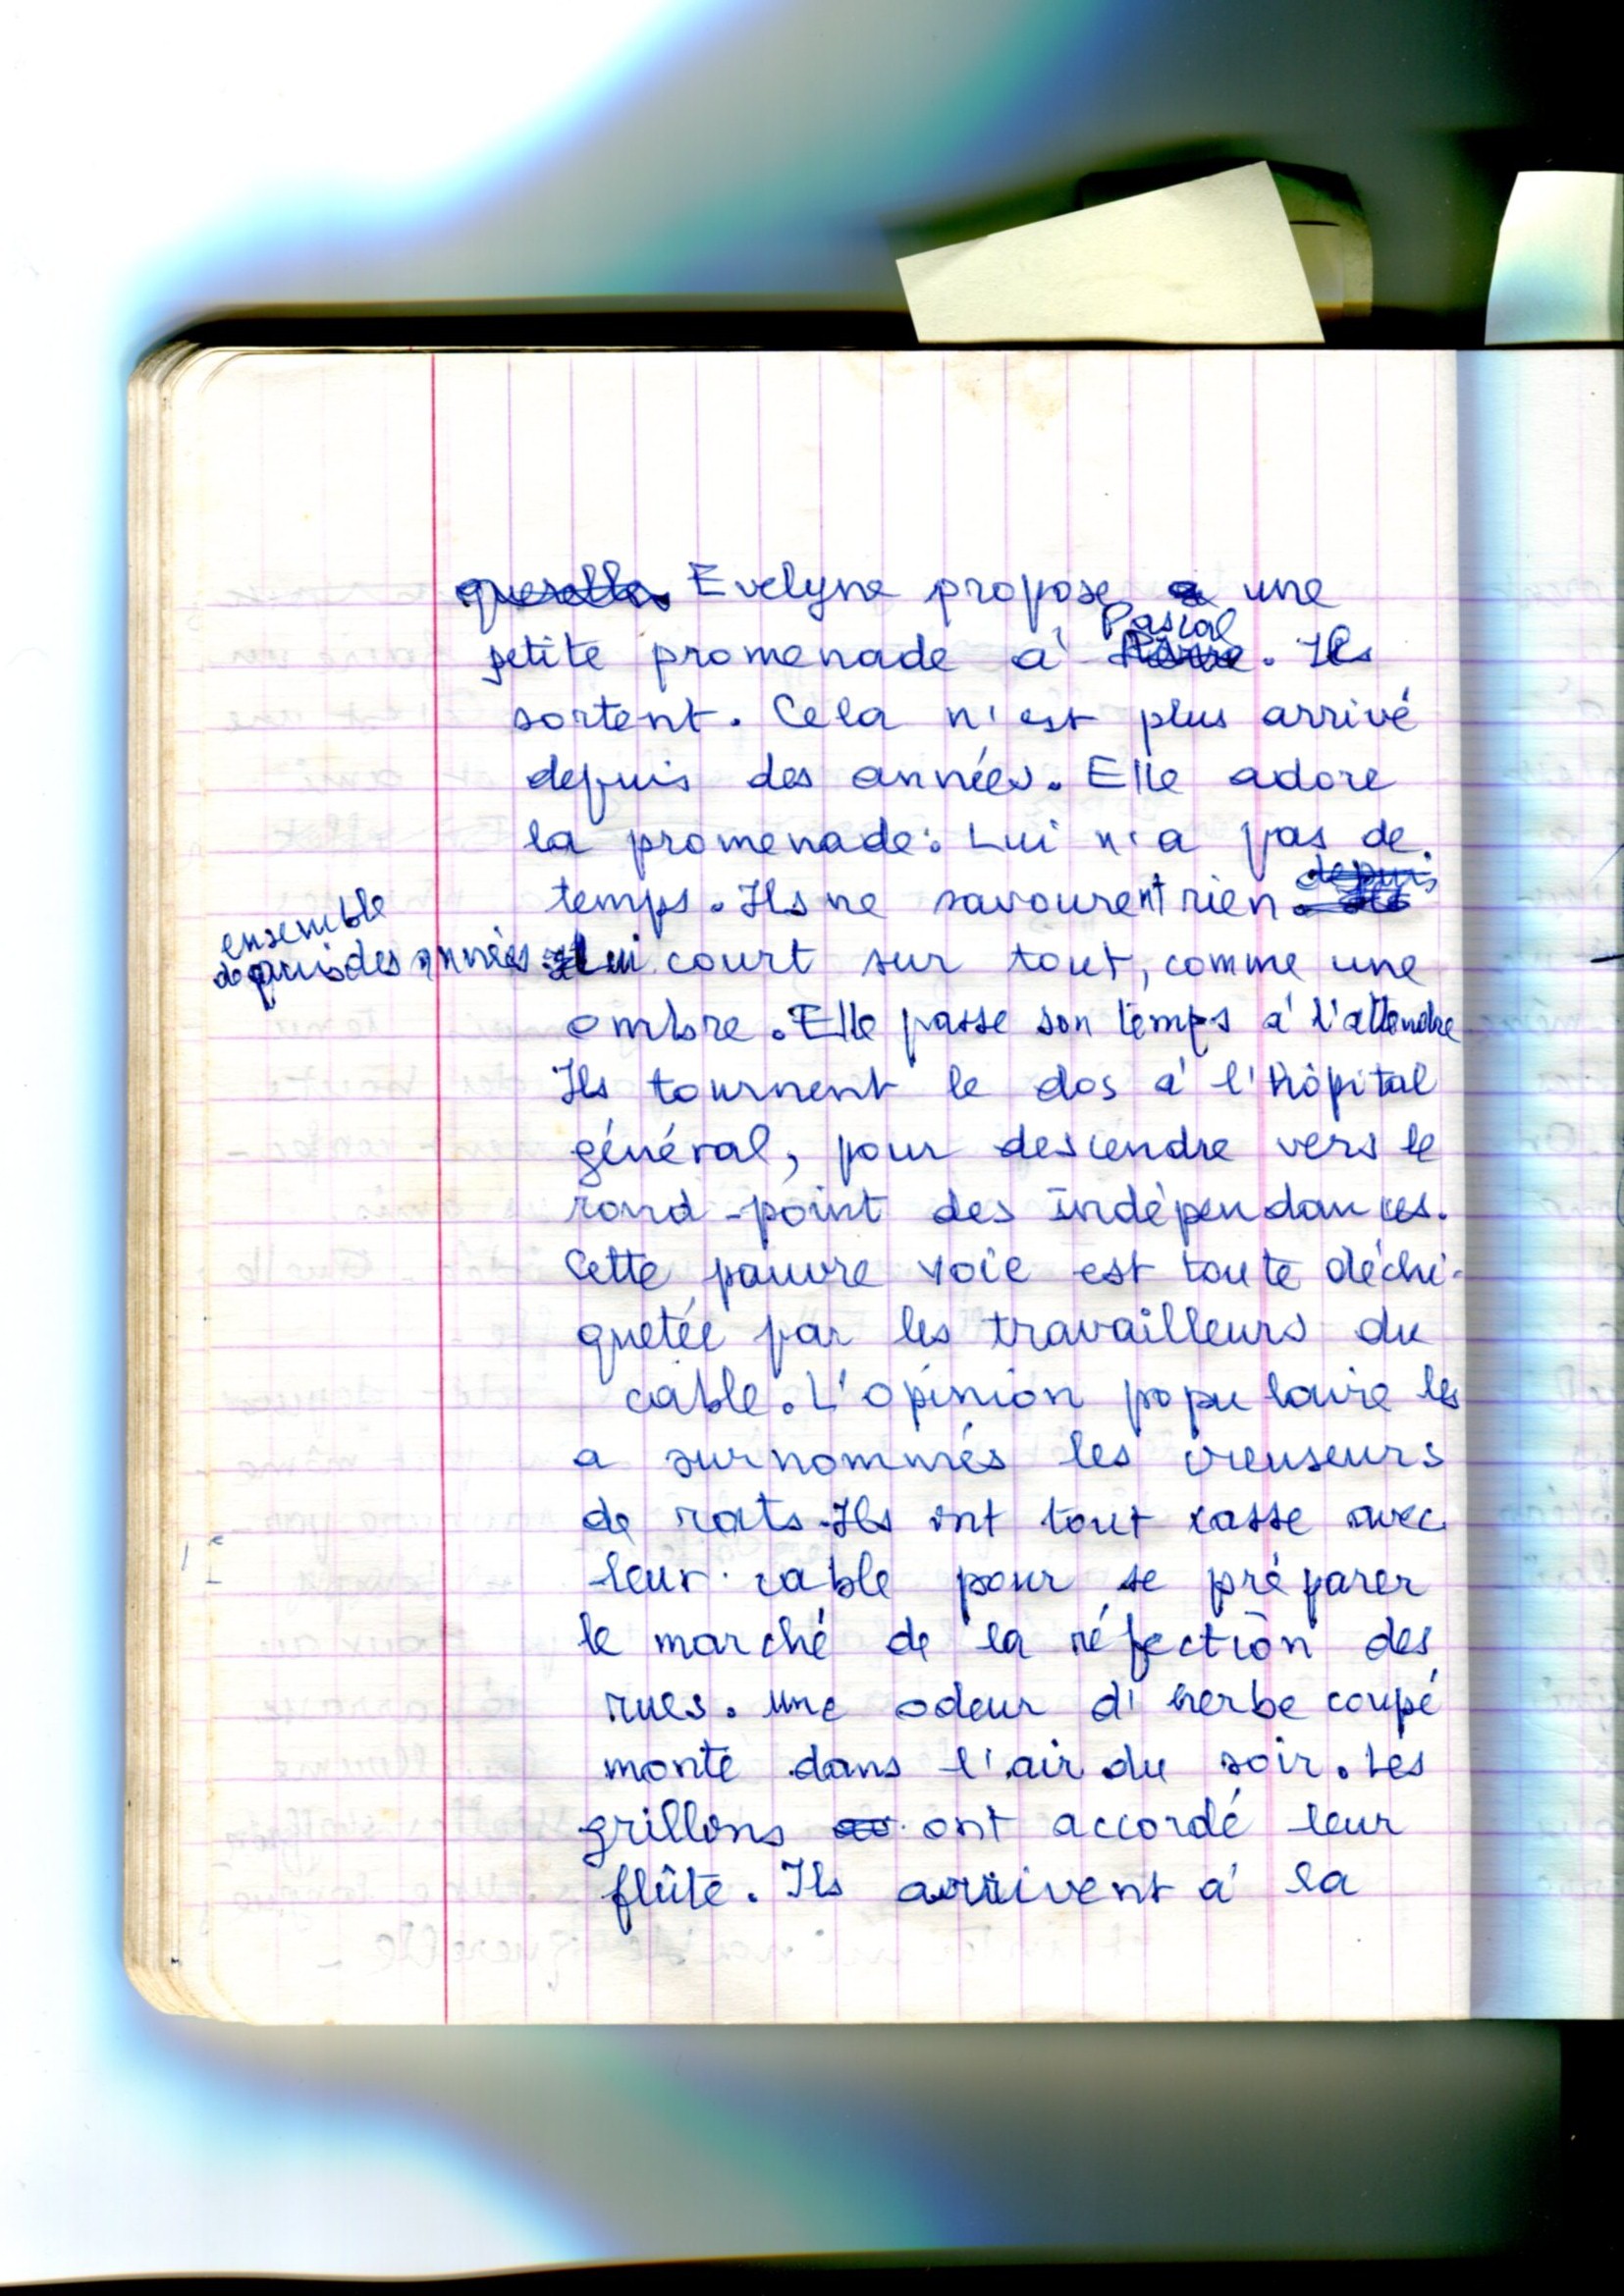 querelle. Evelyne propose a une
Pascal
petite promenade à Pierre. Ils
sortent. Cela n'est plus arrivé
depuis des années. Elle adore
la promenade. Lui n'a pas de
temps. Ils ne savourent rien
depuis
ensemble
depuis des années. Lui court sur tout, comme une
ombre. Elle passe son temps à l'attendre
Ils tournent le dos à l'hôpital
général, pour descendre vers le
rond-point des indépendances.
Cette pauvre voie est toute déchi-
quetée par les travailleurs du
cable. L'opinion populaire les
a surnommés les creuseurs
de rats. Ils ont tout casse avec
leur cable pour se préparer
le marché de la réfection des
rues. une odeur d'herbe coupé
monte dans l'air du soir. Les
grillons ont accordé leur
flûte. Ils arrivent à la